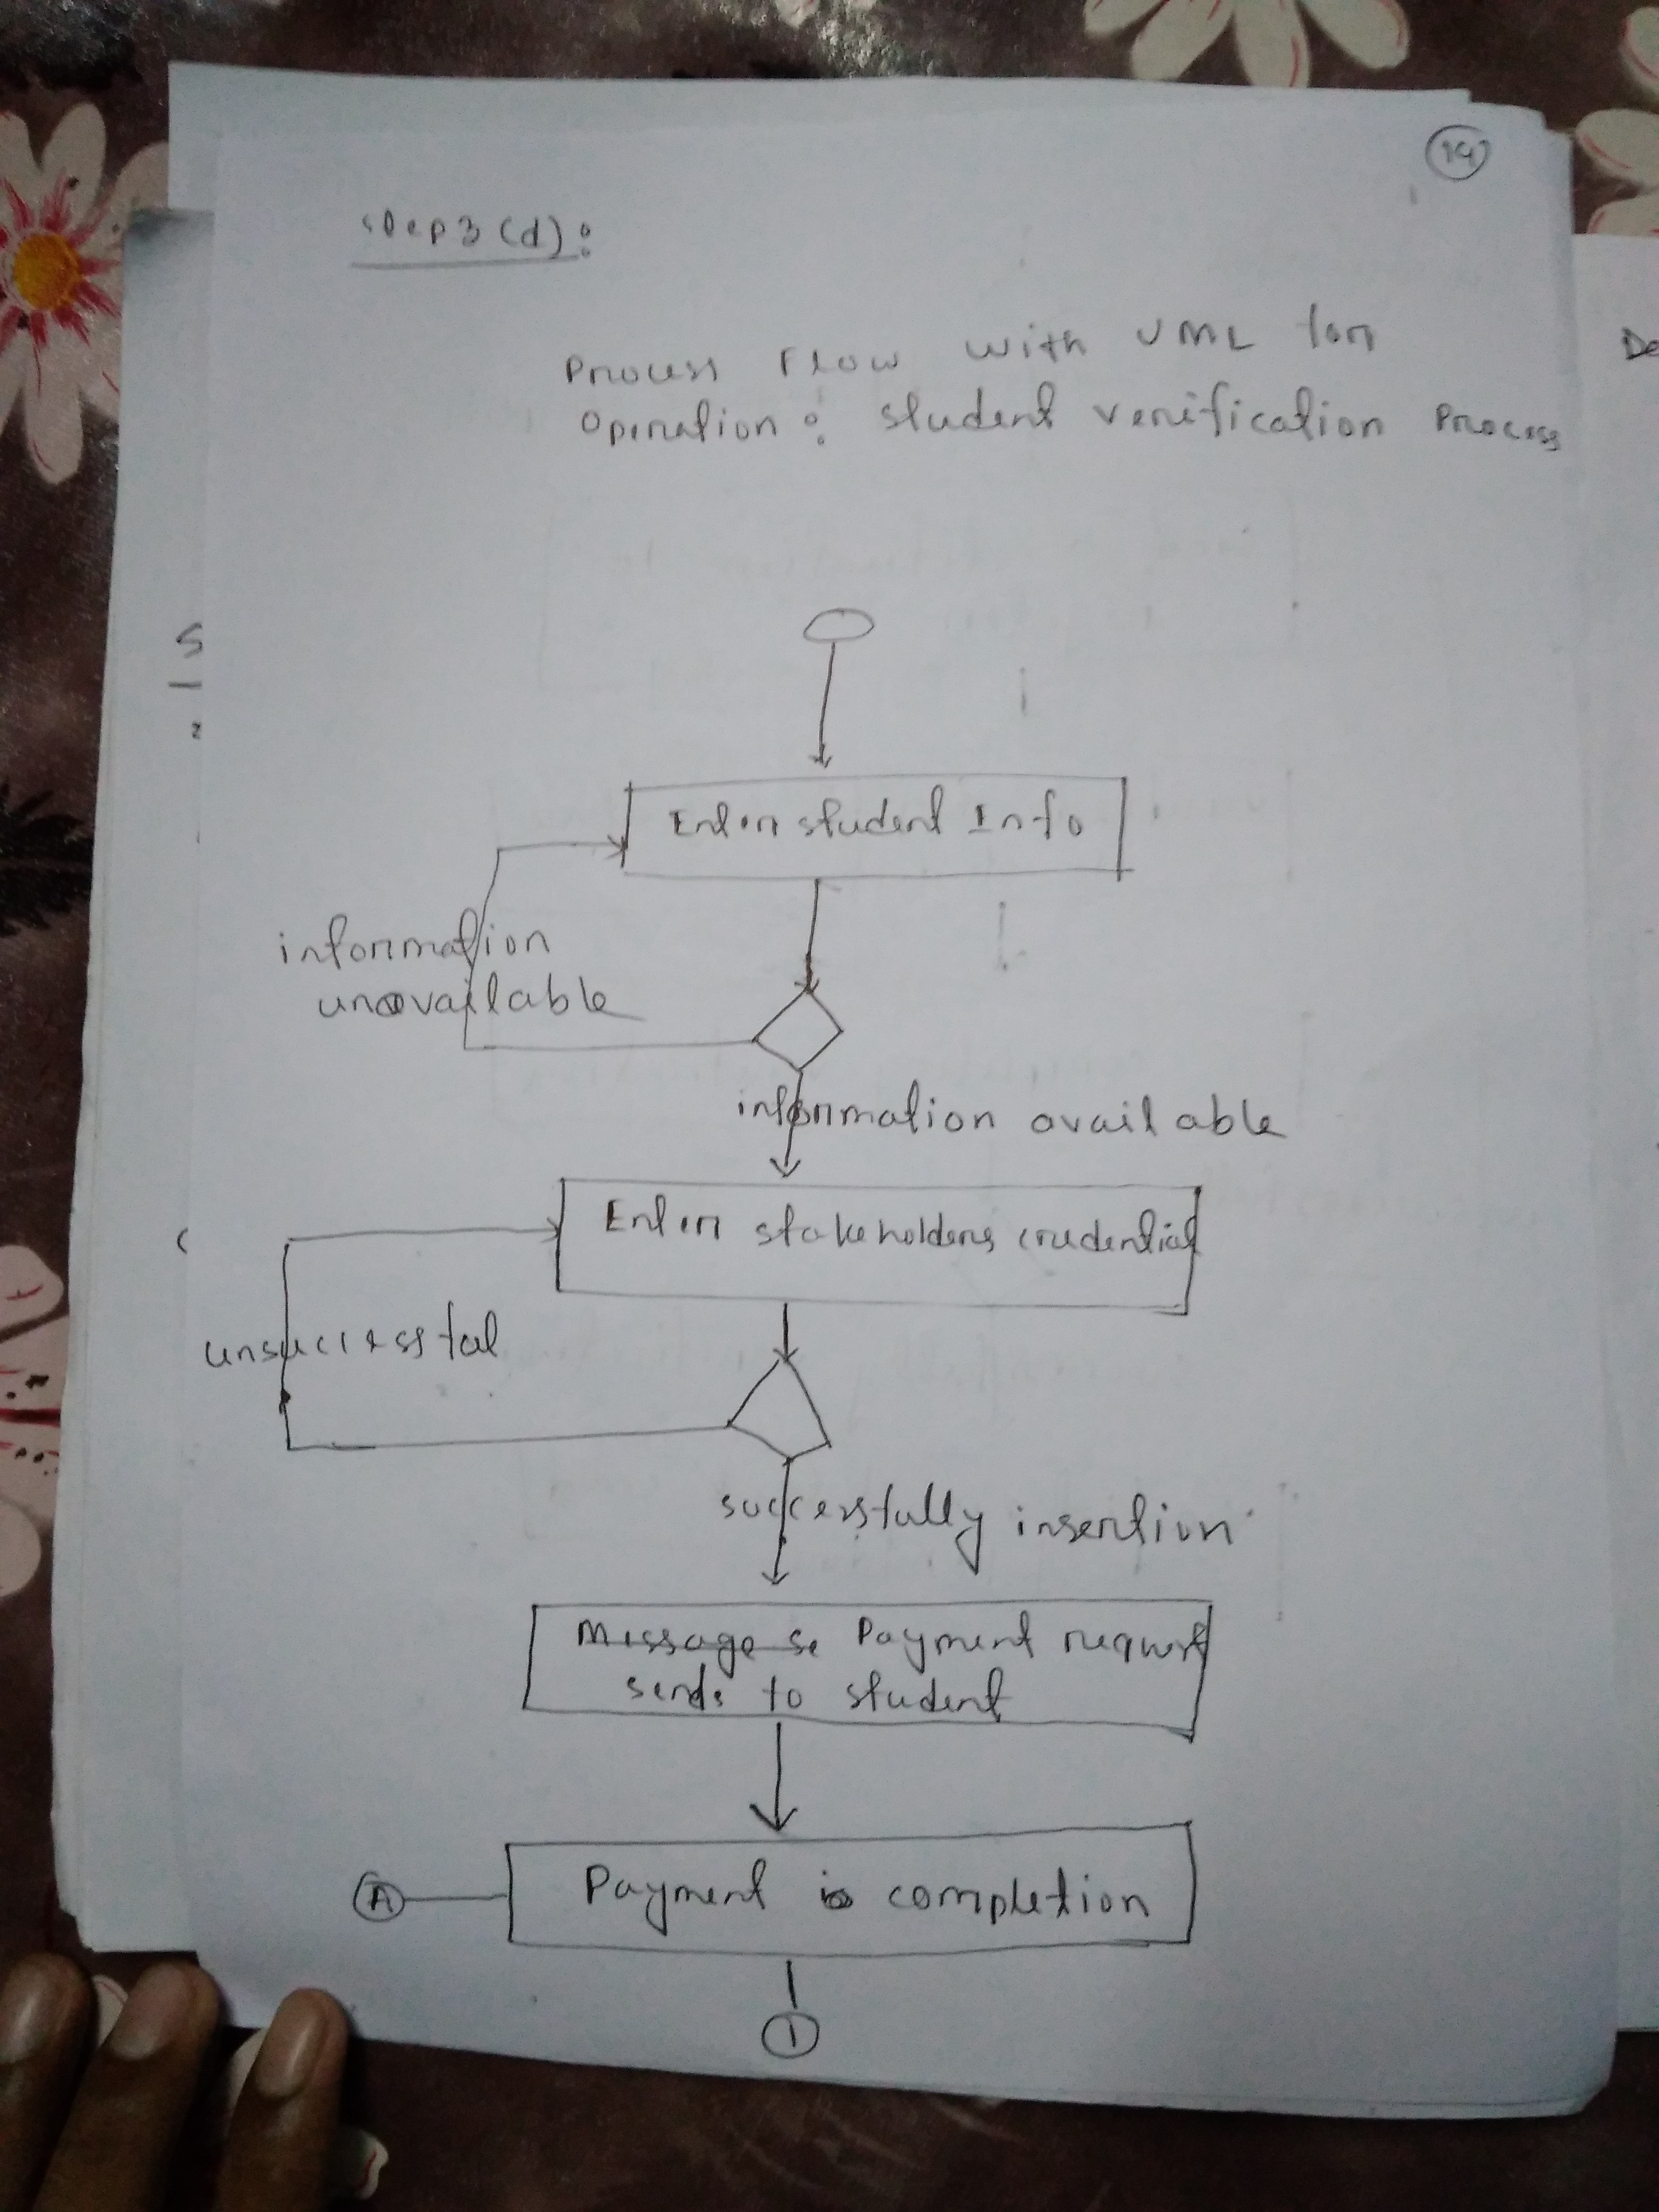 14
Step 3 (d):
Process Flow with UML for
Operation: Student verification Process
Enter student Info
information
unavailable
information available
Enter stakeholders credential
unsuccessful
successfully insertion
Message se Payment request
sends to student
A
Payment is completion
1
S
De